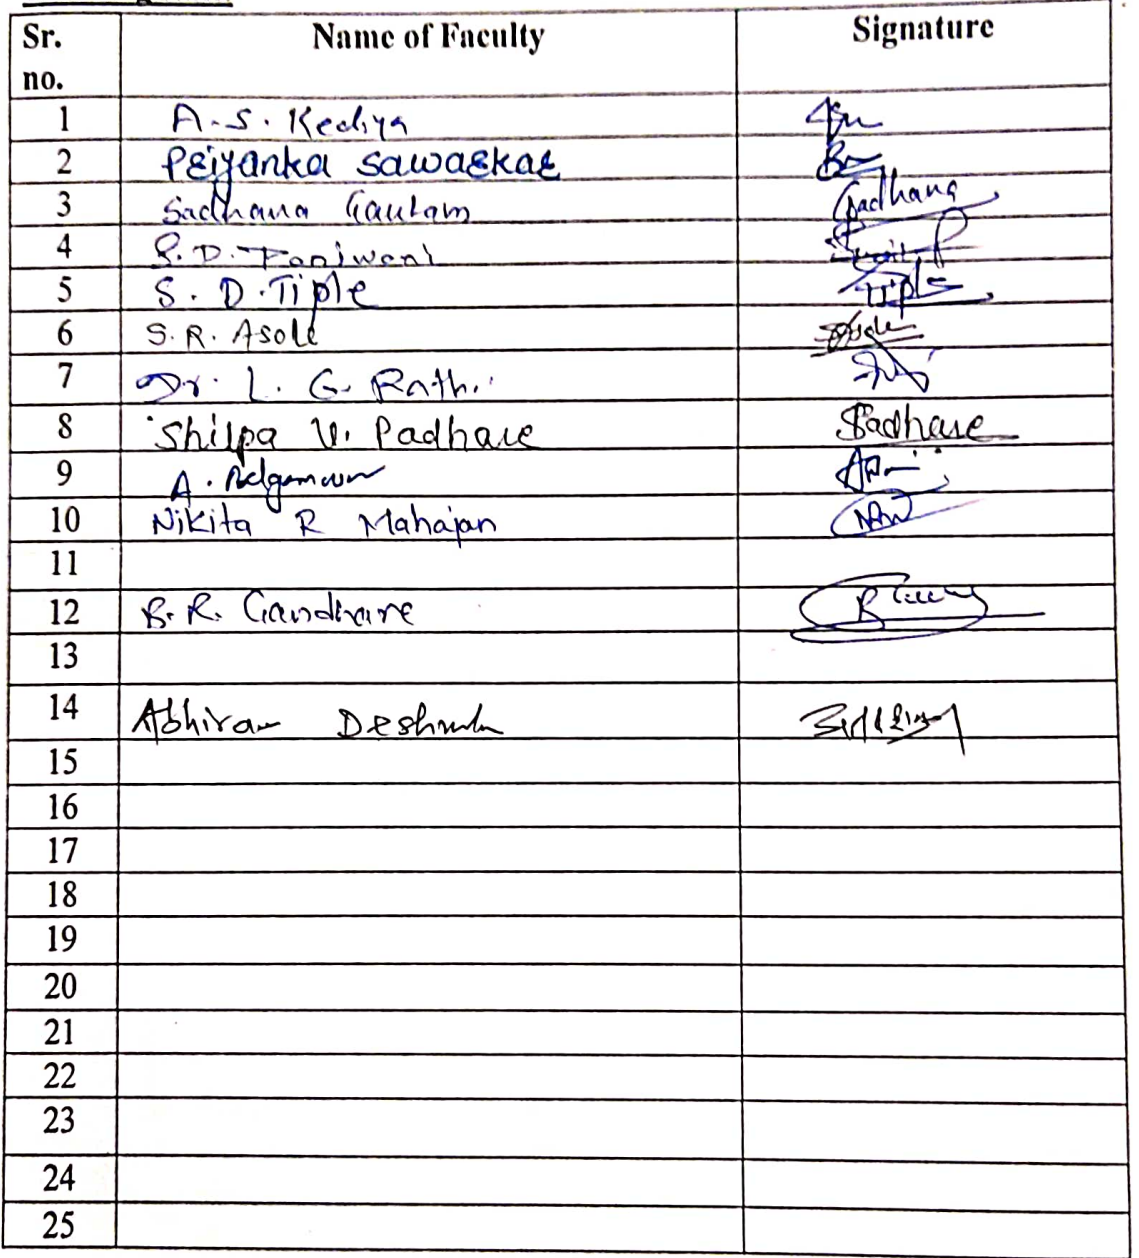 Sr. no. Name of Faculty Signature
1 A.S. Kediya
2 Priyanka Sawarkar
3 Sadhana Gautam Sadhana
4 S.D. Panjwani
5 S. D. Tiple Tiple
6 S.R. Asole Asole
7 Dr. L. G. Rathi
8 Shilpa V. Padhare Padhare
9 A.
10 Nikita R Mahajan
11
12 B.R. Gandhare
13
14 Abhiram Deshmukh
15
16
17
18
19
20
21
22
23
24
25